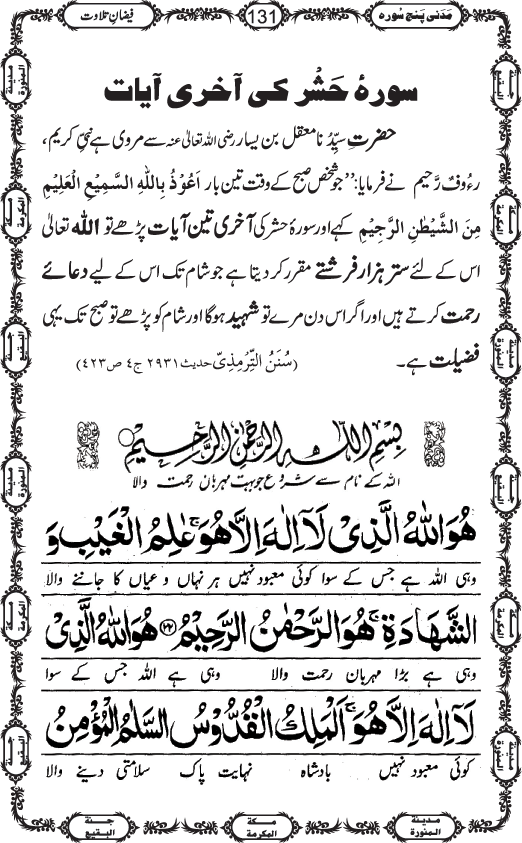 مَدَنی پَنج سُورہ
131
فیضانِ تلاوت
سورۂ حَشْر کی آخری آیات
حضرتِ سیِّدُنا معقل بن یسار رضی اللہ تعالیٰ عنہ سے مروی ہے نبیِّ کریم،
رءُوفٌ رَّحیم نے فرمایا: ’’جو شخص صبح کے وقت تین بار اَعُوْذُ بِاللّٰهِ السَّمِیْعِ الْعَلِیْمِ
مِنَ الشَّیْطٰنِ الرَّجِیْمِ کہے اور سورۂ حشر کی آخری تین آیات پڑھے تو اللہ تعالیٰ
اس کے لئے ستر ہزار فرشتے مقرر کر دیتا ہے جو شام تک اس کے لیے دعائے
رحمت کرتے ہیں اور اگر اس دن مرے تو شہید ہوگا اور شام کو پڑھے تو صبح تک یہی
فضیلت ہے۔ (سُنَنُ التِّرمِذِیّ حدیث ۲۹۳۱ ج٤ ص٤٢٣)
بِسْمِ اللّٰهِ الرَّحْمٰنِ الرَّحِیْمِ
اللہ کے نام سے شروع جو بہت مہربان رحمت والا
هُوَ اللّٰهُ الَّذِیْ لَاۤ اِلٰهَ اِلَّا هُوَۚ عٰلِمُ الْغَیْبِ وَ
وہی اللہ ہے جس کے سوا کوئی معبود نہیں ہر نہاں و عیاں کا جاننے والا
الشَّهَادَةِۚ هُوَ الرَّحْمٰنُ الرَّحِیْمُ ﴿۲۲﴾ هُوَ اللّٰهُ الَّذِیْ
وہی ہے بڑا مہربان رحمت والا وہی ہے اللہ جس کے سوا
لَاۤ اِلٰهَ اِلَّا هُوَۚ اَلْمَلِكُ الْقُدُّوْسُ السَّلٰمُ الْمُؤْمِنُ
کوئی معبود نہیں بادشاہ نہایت پاک سلامتی دینے والا
مدینۃ المنورۃ
جنۃ البقیع
مکۃ المکرمۃ
مدینۃ المنورۃ
جنۃ البقیع
مکۃ المکرمۃ
مدینۃ المنورۃ
جنۃ البقیع
مکۃ المکرمۃ
مدینۃ المنورۃ
جنۃ البقیع
مکۃ المکرمۃ
مدینۃ المنورۃ
جنۃ البقیع
مکۃ المکرمۃ
مدینۃ المنورۃ